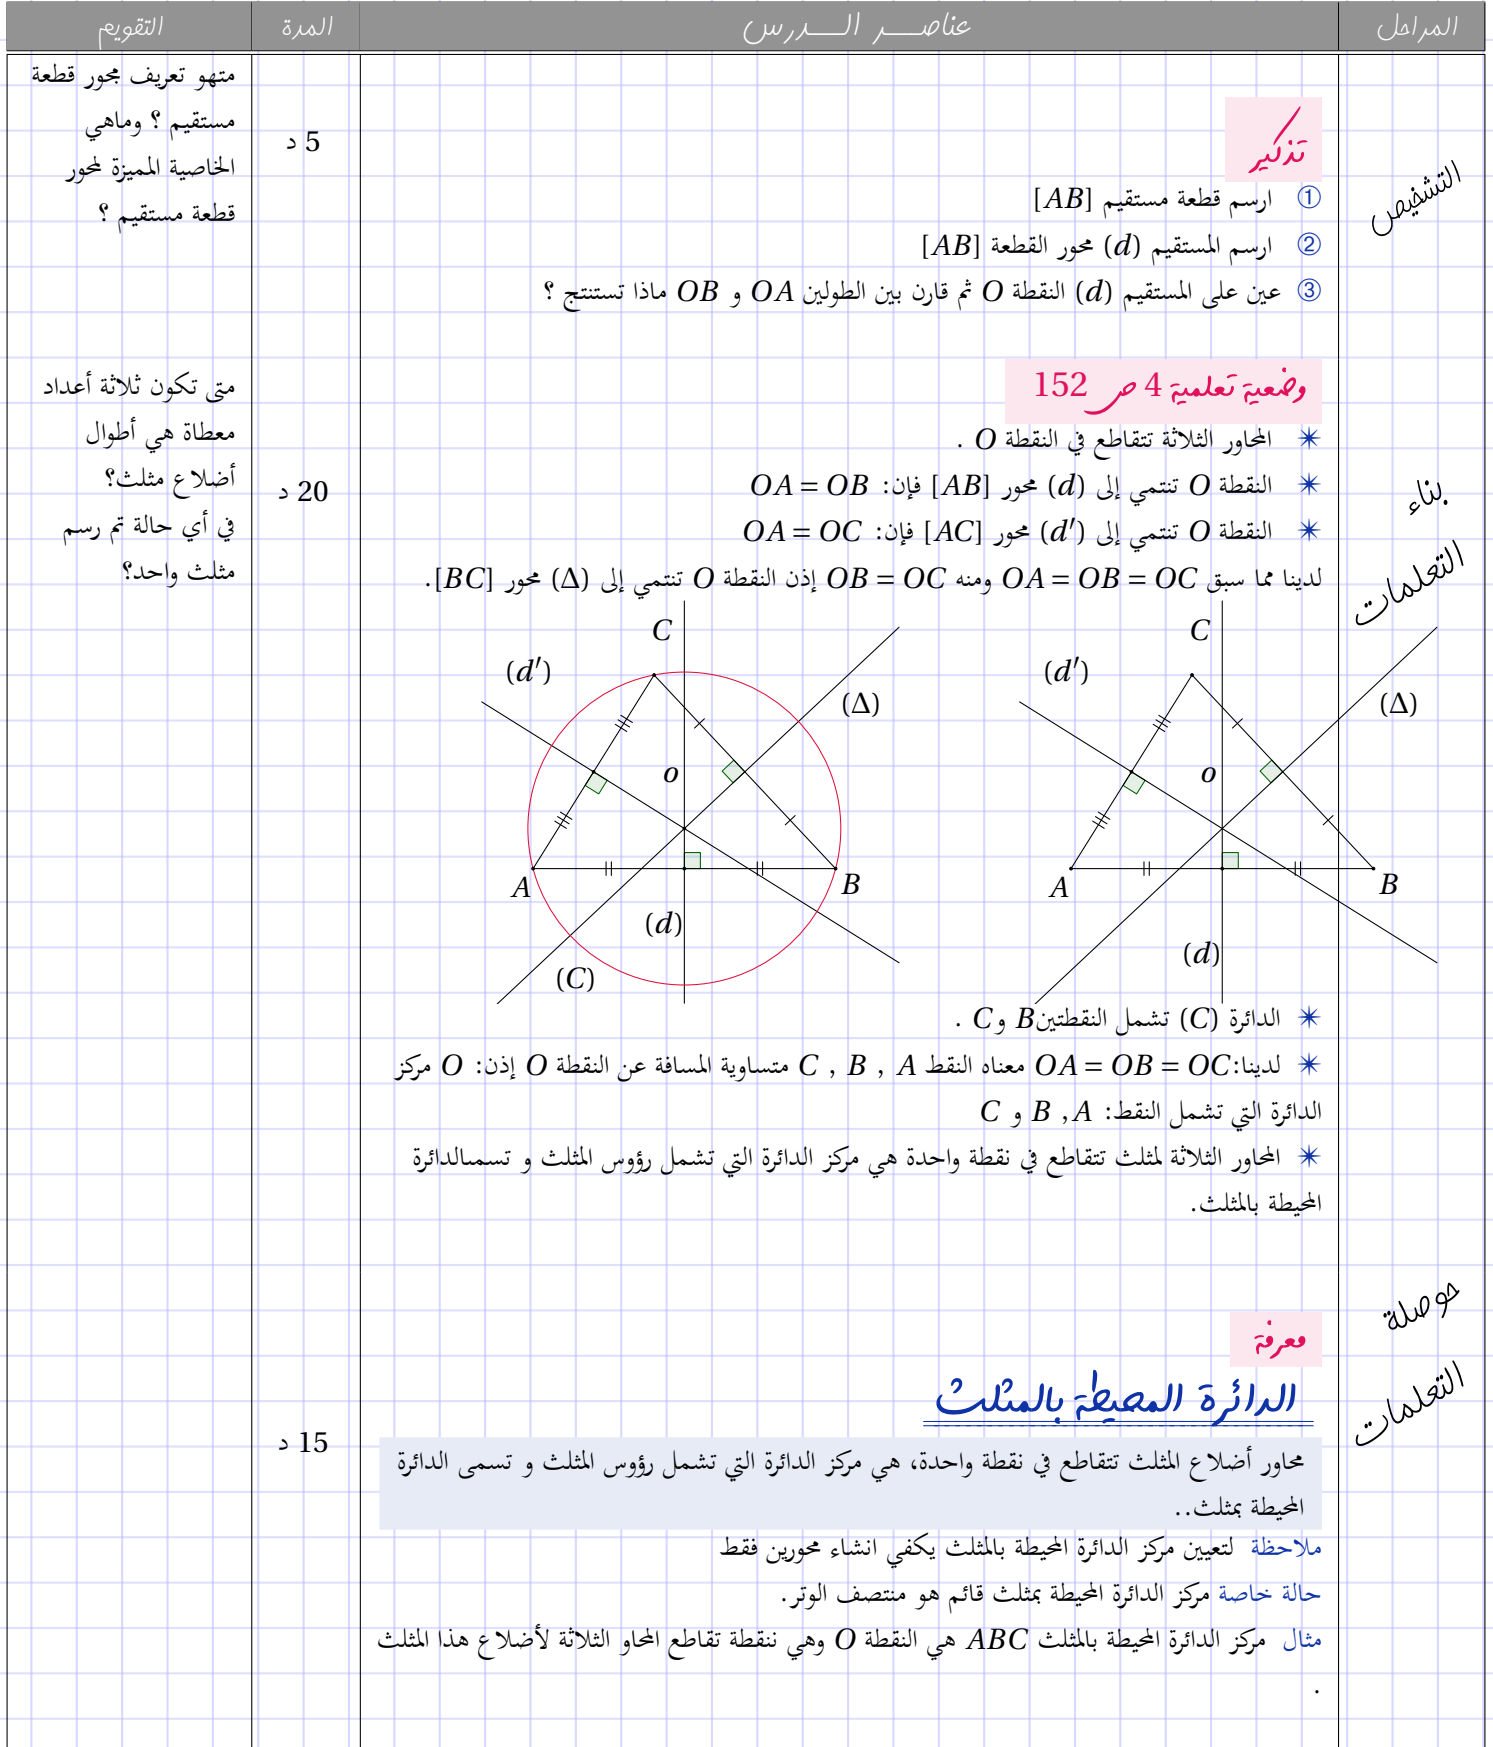 المراحل
عناصـــر الـــدرس
المدة
التقويم
التشخيص
تذكير
① ارسم قطعة مستقيم [AB]
② ارسم المستقيم (d) محور القطعة [AB]
③ عين على المستقيم (d) النقطة O ثم قارن بين الطولين OA و OB ماذا تستنتج ؟
5 د
متهو تعريف محور قطعة
مستقيم ؟ وماهي
الخاصية المميزة لمحور
قطعة مستقيم ؟
بناء
التعلمات
وضعية تعلمية 4 ص 152
✴ المحاور الثلاثة تتقاطع في النقطة O .
✴ النقطة O تنتمي إلى (d) محور [AB] فإن: OA = OB
✴ النقطة O تنتمي إلى (d′) محور [AC] فإن: OA = OC
لدينا مما سبق OA = OB = OC ومنه OB = OC إذن النقطة O تنتمي إلى (Δ) محور [BC].
20 د
متى تكون ثلاثة أعداد
معطاة هي أطوال
أضلاع مثلث؟
في أي حالة تم رسم
مثلث واحد؟
C
(d′)
(Δ)
o
A
B
(d)
C
(d′)
(Δ)
o
A
B
(d)
(C)
✴ الدائرة (C) تشمل النقطتينB وC .
✴ لدينا:OA = OB = OC معناه النقط A , B , C متساوية المسافة عن النقطة O إذن: O مركز
الدائرة التي تشمل النقط: A , B و C
✴ المحاور الثلاثة لمثلث تتقاطع في نقطة واحدة هي مركز الدائرة التي تشمل رؤوس المثلث و تسمىالدائرة
المحيطة بالمثلث.
حوصلة
التعلمات
معرفة
الدائرة المحيطة بالمثلث
محاور أضلاع المثلث تتقاطع في نقطة واحدة، هي مركز الدائرة التي تشمل رؤوس المثلث و تسمى الدائرة
المحيطة بمثلث..
ملاحظة لتعيين مركز الدائرة المحيطة بالمثلث يكفي انشاء محورين فقط
حالة خاصة مركز الدائرة المحيطة بمثلث قائم هو منتصف الوتر.
مثال مركز الدائرة المحيطة بالمثلث ABC هي النقطة O وهي ننقطة تقاطع المحاو الثلاثة لأضلاع هذا المثلث
.
15 د